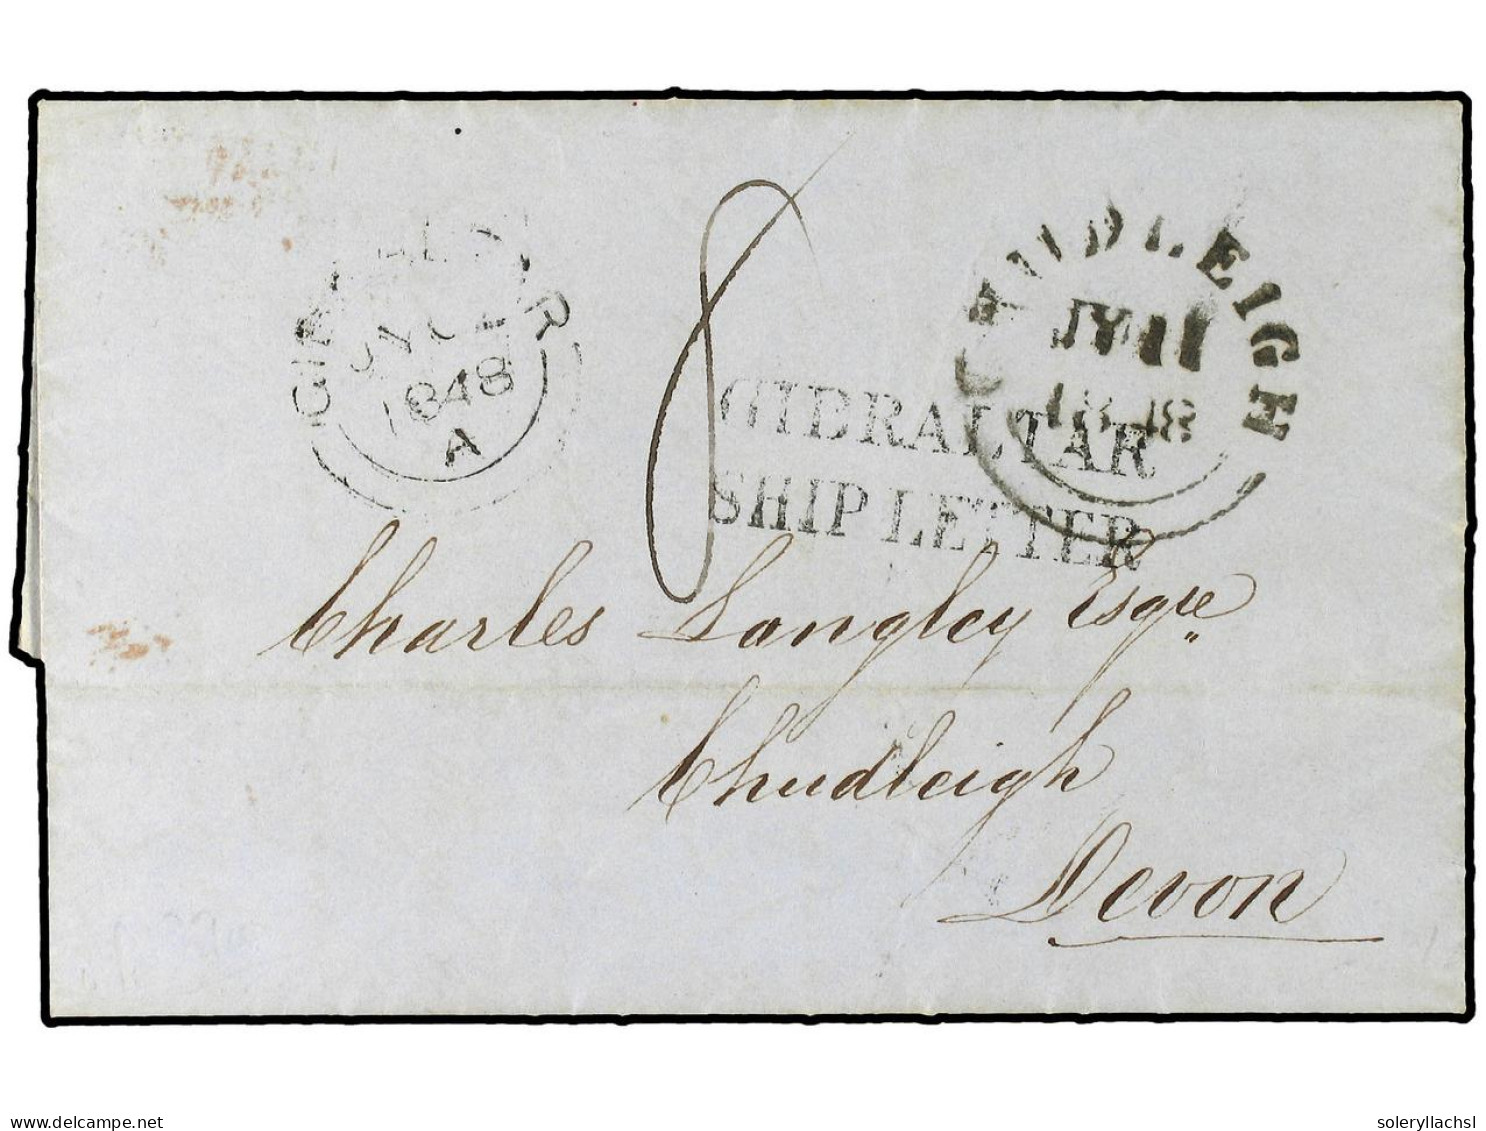 GIBRALTAR
1848
A
8
CHUDLEIGH
JY 11
1848
GIBRALTAR
SHIP LETTER
Charles Langley Esqre
Chudleigh
Devon
delcampe.net
soleryllachsl